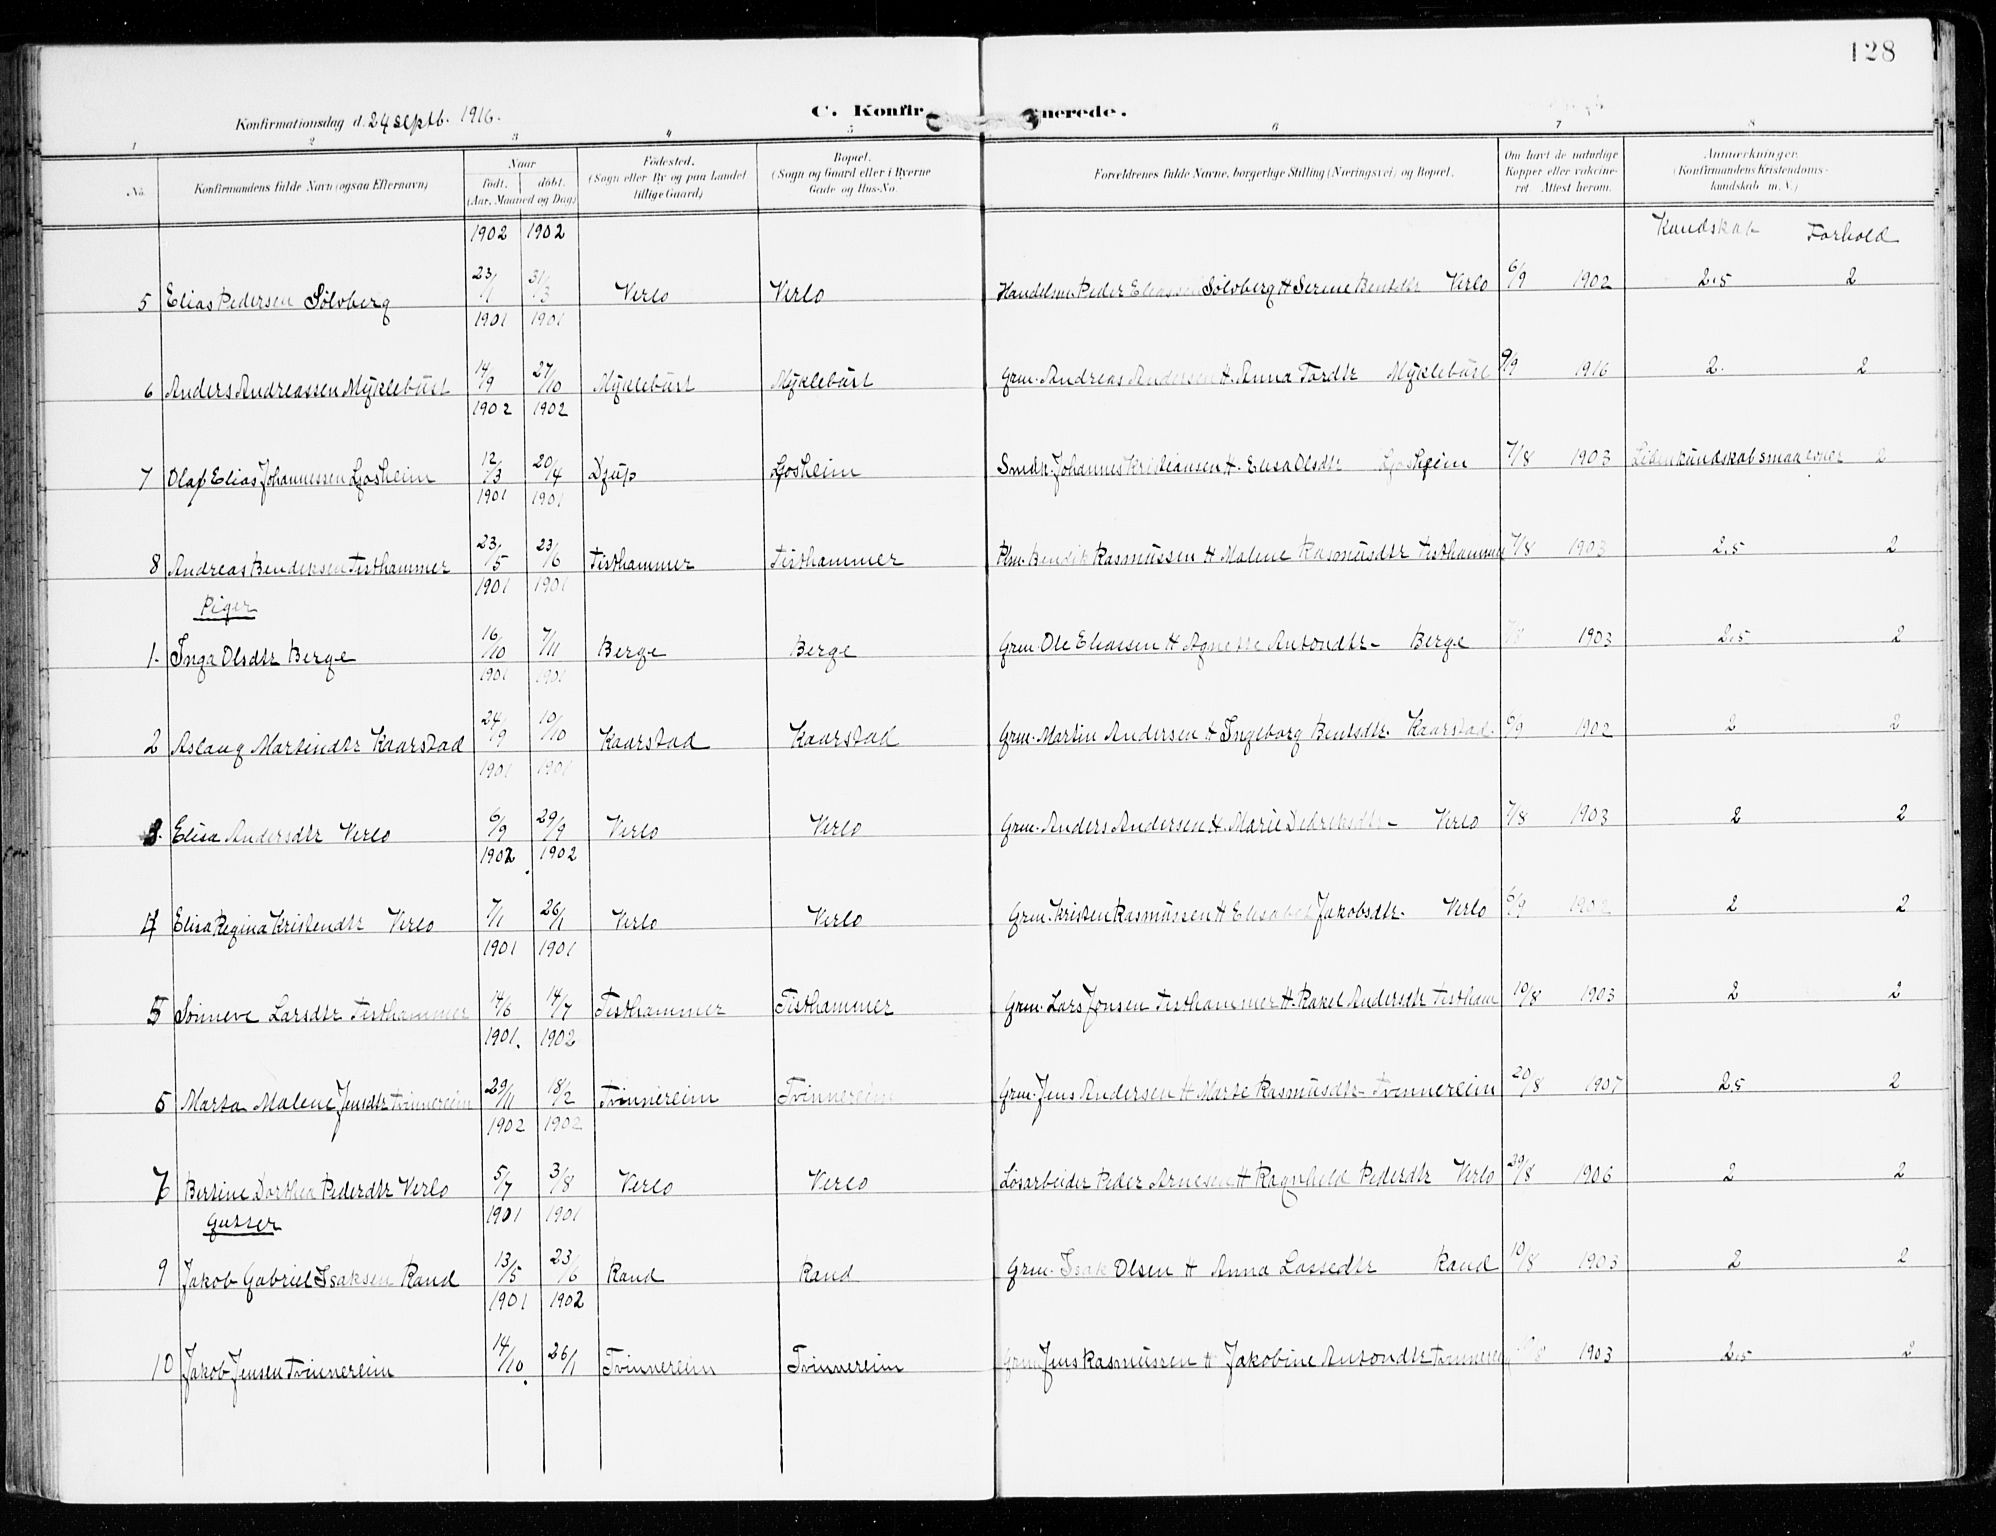 128
Konfirmationsdag d. 24 septb. 1916.
C. Konfir nerede.
1 2 3 4 5 6 7 8
No. Konfirmandens fulde Navn (ogsaa Efternavn) Naar født. døbt. (Aar, Maaned og Dag) Fødested. (Sogn eller By og paa Landet tillige Gaard) Bopæl. (Sogn og Gaard eller i Byerne Gade og Hus-No. Forældrenes fulde Navne, borgerlige Stilling (Næringsvei) og Bopæl. Om havt de naturlige Kopper eller vaccineret. Attest herom. Anmærkninger. (Konfirmandens Kristendomskundskab m. V.)
1902 1902 Kundskab Forhold
5 Elias Pedersen Sölvberg 23/1 31/3 Verlo Verlo Handelsm. Peder Eliassen Sölvberg H Serene Bentdtr Verlo 6/9 1902 2.5 2
1901 1901
6 Anders Andreassen Myklebust 14/9 27/10 Myklebust Myklebust Grm. Andreas Andersen H. Anna Tordtr Myklebust 9/9 1916 2. 2
1902 1902
7 Olaf Elias Johannessen Ljosheim 12/3 20/4 Djup Ljosheim Smdr. Johannes Kristiansen H. Elisa Olsdtr Ljosheim 7/8 1903 Liden kundskab smaa evner 2
1901 1901
8 Andreas Bendiksen Tisthammer 23/5 23/6 Tisthammer Tisthammer Plm. Bendik Rasmussen H Malene Rasmusdtr Tisthammer 7/8 1903 2.5 2
1901 1901
Piger
1. Inga Olsdtr Berge 16/10 7/11 Berge Berge Grm. Ole Eliassen H Agnethe Antondtr - Berge 7/8 1903 2.5 2
1901 1901
2 Aslaug Martindtr Kaarstad 24/9 10/10 Kaarstad Kaarstad Grm. Martin Andersen H Ingeborg Bentsdtr. Kaarstad. 6/9 1902 2 2
1901 1901
3. Elisa Andersdtr Verlo 6/9 29/9 Verlo Verlo Grm. Anders Andersen H. Marie Didriksdtr - Verlo 7/8 1903 2 2
1902 1902
4 Elisa Regina Kristendtr Verlo 7/1 26/1 Verlo Verlo Grm. Kristen Rasmussen H Elisabet Jakobsdtr. Verlo 6/9 1902 2 2
1901 1901
5 Sönneve Larsdtr Tisthammer 14/6 14/7 Tisthammer Tisthammer Grm. Lars Jonsen Tisthammer H. Rakel Andersdtr Tistham 10/8 1903 2 2
1901. 1902
5 Marta Malene Jensdtr Tvinnereim 29/11 18/2 Tvinnereim Tvinnereim Grm. Jens Andersen H Marte Rasmusdtr - Tvinnereim 20/8 1907 2.5 2
1902 1902
6 Bertine Dorthea Pederdtr Verlo 5/7 3/8 Verlo Verlo Lösarbeider Peder Arnesen H Ragnhild Pederdtr Verlo 20/8 1906 2 2
1901 1901
Gutter
9 Jakob Gabriel Isaksen Rand 13/5 23/6 Rand Rand Grm. Isak Olsen H Anna Lassedtr Rand 10/8 1903 2 2
1901 1902
10 Jakob Jensen Tvinnereim 14/10. 26/1 Tvinnereim Tvinnereim Grm Jens Rasmussen H Jakobine Antondtr 10/8 1903 2.5 2